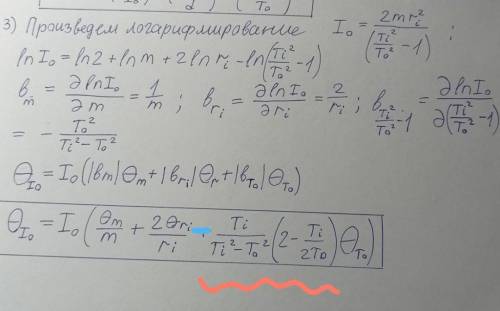 3) Произведем логарифмирование I₀ = 2mrᵢ² / (Tᵢ²/T₀² - 1) ;
ln I₀ = ln2 + ln m + 2 ln rᵢ - ln(Tᵢ²/T₀² - 1)
bₘ = ∂ln I₀/∂m = 1/m ; b_rᵢ = ∂ln I₀/∂rᵢ = 2/rᵢ ; b_(Tᵢ²/T₀² - 1) = ∂ln I₀/∂(Tᵢ²/T₀² - 1)
= - T₀²/(Tᵢ² - T₀²)
θ_I₀ = I₀(|bm|θₘ + |b_rᵢ|θᵣ + |b_T₀|θ_T₀)
θ_I₀ = I₀(θm/m + 2θrᵢ/rᵢ · Tᵢ/(Tᵢ² - T₀²) (2 - Tᵢ/2T₀) θ_T₀)